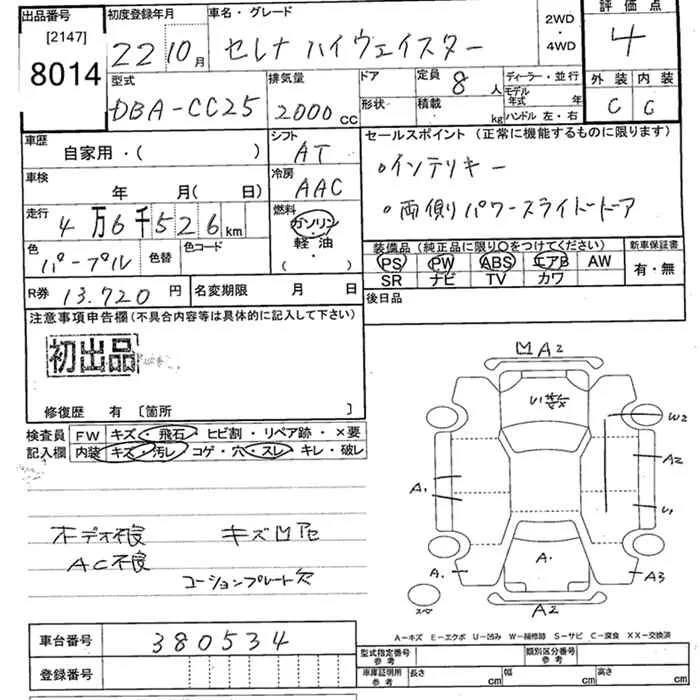 出品番号 [2147] 8014
初度登録年月 22 10月
車名・グレード セレナ ハイウェイスター
2WD・4WD
評価点 4
型式 DBA-CC25
排気量 2000 CC
ドア
形状
定員 8人
積載 kg
ディーラー・並行
モデル年式 年
ハンドル 左・右
外装 内装
C C
車歴 自家用・( )
シフト AT
セールスポイント (正常に機能するものに限ります)
・インテリキー
・両側パワースライドドア
車検 年 月( 日)
冷房 AAC
走行 4万6千526km
燃料 ガソリン・軽油・( )
色 パープル 色替 色コード
装備品 (純正品に限り○をつけてください)
PS PW ABS エアB AW
SR ナビ TV カワ
新車保証書 有・無
R券 13.720円
名変期限 月 日
後日品
注意事項申告欄(不具合内容等は具体的に記入して下さい)
初出品
修復歴 有 [箇所 ]
検査員記入欄
FW キズ・飛石・ヒビ割・リペア跡・×要
内装 キズ・汚レ・コゲ・穴・スレ・キレ・破レ
キズ凹色
AC不良
コーションプレート欠
凹A2
U1
W2
A2
A1
U1
A.
A.
A3
A2
スペ
A-キズ E-エクボ U-凹み W-補修跡 S-サビ C-腐食 XX-交換済
車台番号 380534
登録番号
型式指定番号 参考
類別区分番号 参考
車庫証明用 参考 長さ cm 幅 cm 高さ cm